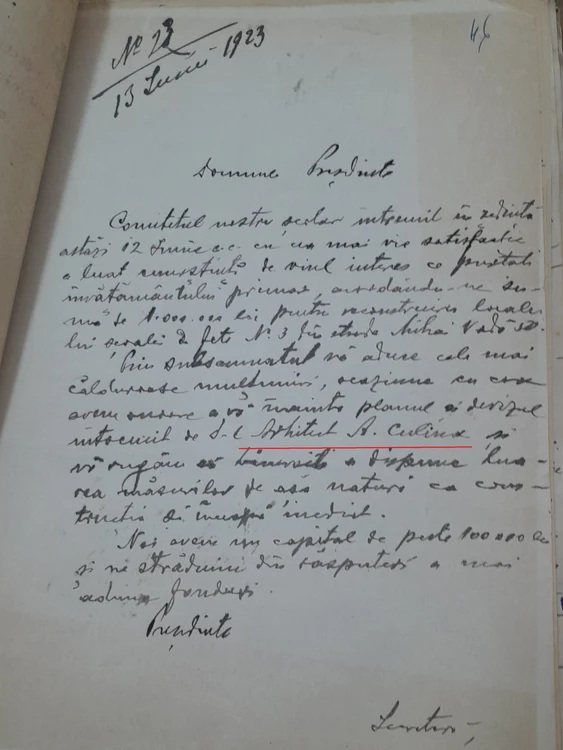 46
Nº 23
13 Iunie 1923
Domnule Președinte
Comitetul nostru școlar întrunit în ședință
astăzi 12 Iunie a.c. cu cea mai vie satisfacție
a luat cunoștință de viul interes ce purtați
învățământului primar, acordându-ne su-
mă de 1.000.000 lei pentru reconstruirea localu-
lui școalei de fete Nº 3 din strada Mihai Vodă
Prin subsemnatul vă aduce cele mai
călduroase mulțumiri, ocaziune cu care
avem onoare a vă înainta planul și devizul
întocmit de D-l Arhitect A. Culina și
vă rugăm să a dispune lua-
rea măsurilor de așa natură ca cons-
trucția să înceapă imediat.
Noi avem un capital de peste 100 000 lei
și ne străduim din răsputeri a mai
aduna fonduri.
Președinte
Secretar,